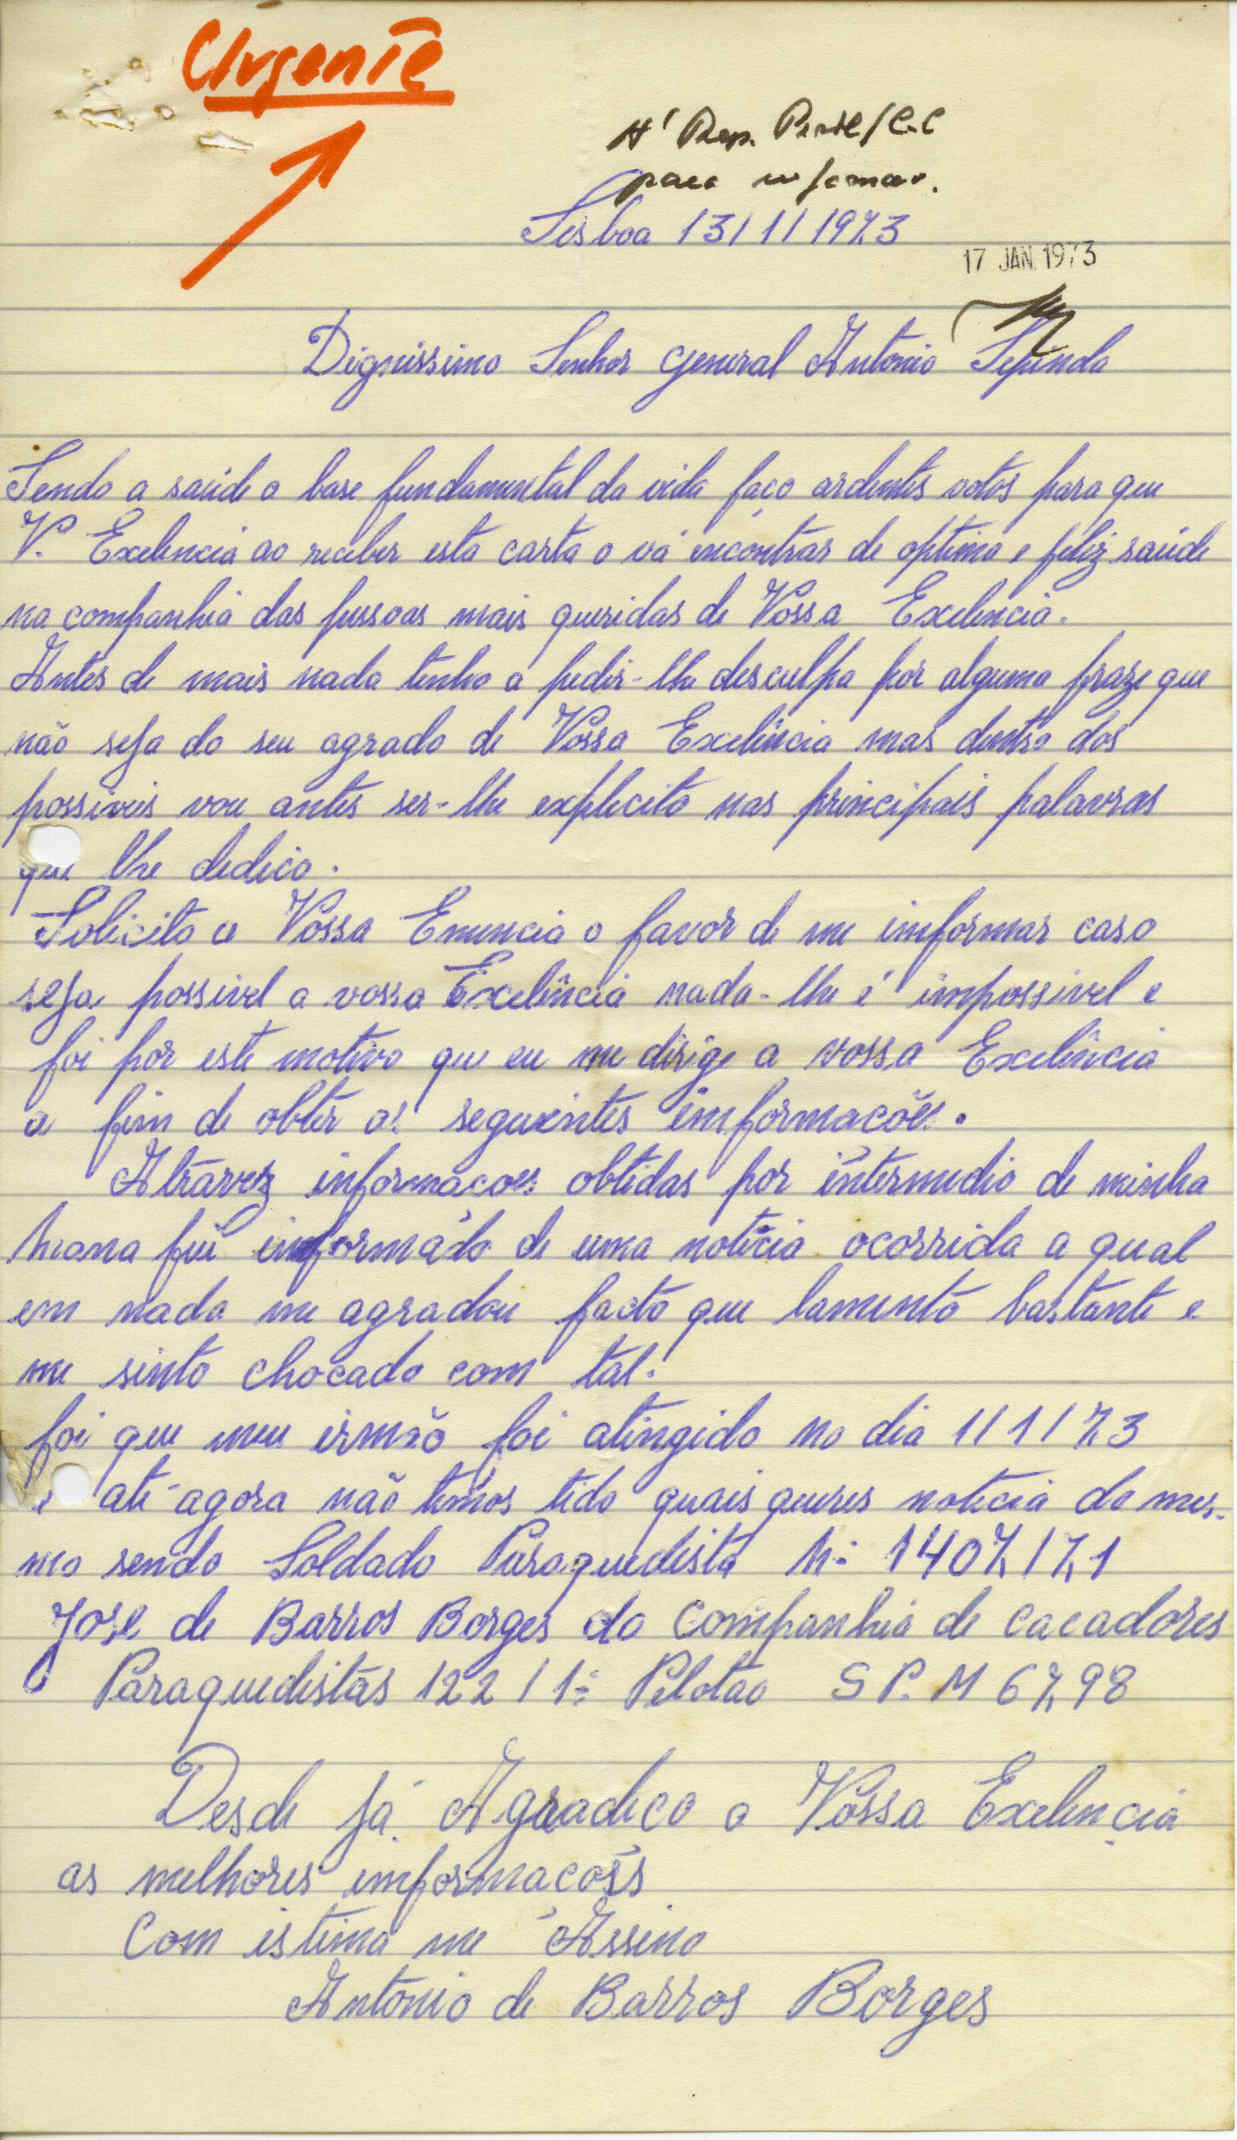 Urgente
para informar.
Lisboa 13/1/1973
17 JAN. 1973
Dignissimo Senhor General António
Sendo a saúde a base fundamental da vida faço ardentes votos para que
V. Exelencia ao receber esta carta o vá encontrar de optima e feliz saúde
na companhia das pessoas mais queridas de Vossa Exelencia.
Antes de mais nada tenho a pedir-lhe desculpa por alguma fraze que
não seja do seu agrado de Vossa Exelência mas dentro dos
possiveis vou antes ser-lhe explicito nas principais palavras
que lhe dedico.
Solicito a Vossa Emencia o favor de me imformar caso
seja possivel a vossa Exelência nada-lhe é impossivel e
foi por este motivo que eu me dirige a vossa Exelência
a fim de obter as seguintes imformacões.
Atravez informacoes obtidas por intermedio de minha
mana fui informado de uma noticia ocorrida a qual
em nada me agradou facto que lamento bastante e
me sinto chocado com tal.
foi que meu irmão foi atingido no dia 1/1/73
e até agora não temos tido quais queres noticia do mes-
mo sendo Soldado Paraquedista Nº 1407/71
José de Barros Borges da Companhia de cacadores
Paraquedistas 122/1º Pelotão S P. M 6798
Desde já Agradeco a Vossa Exelencia
as melhores imformacões
Com istima me Assino
António de Barros Borges